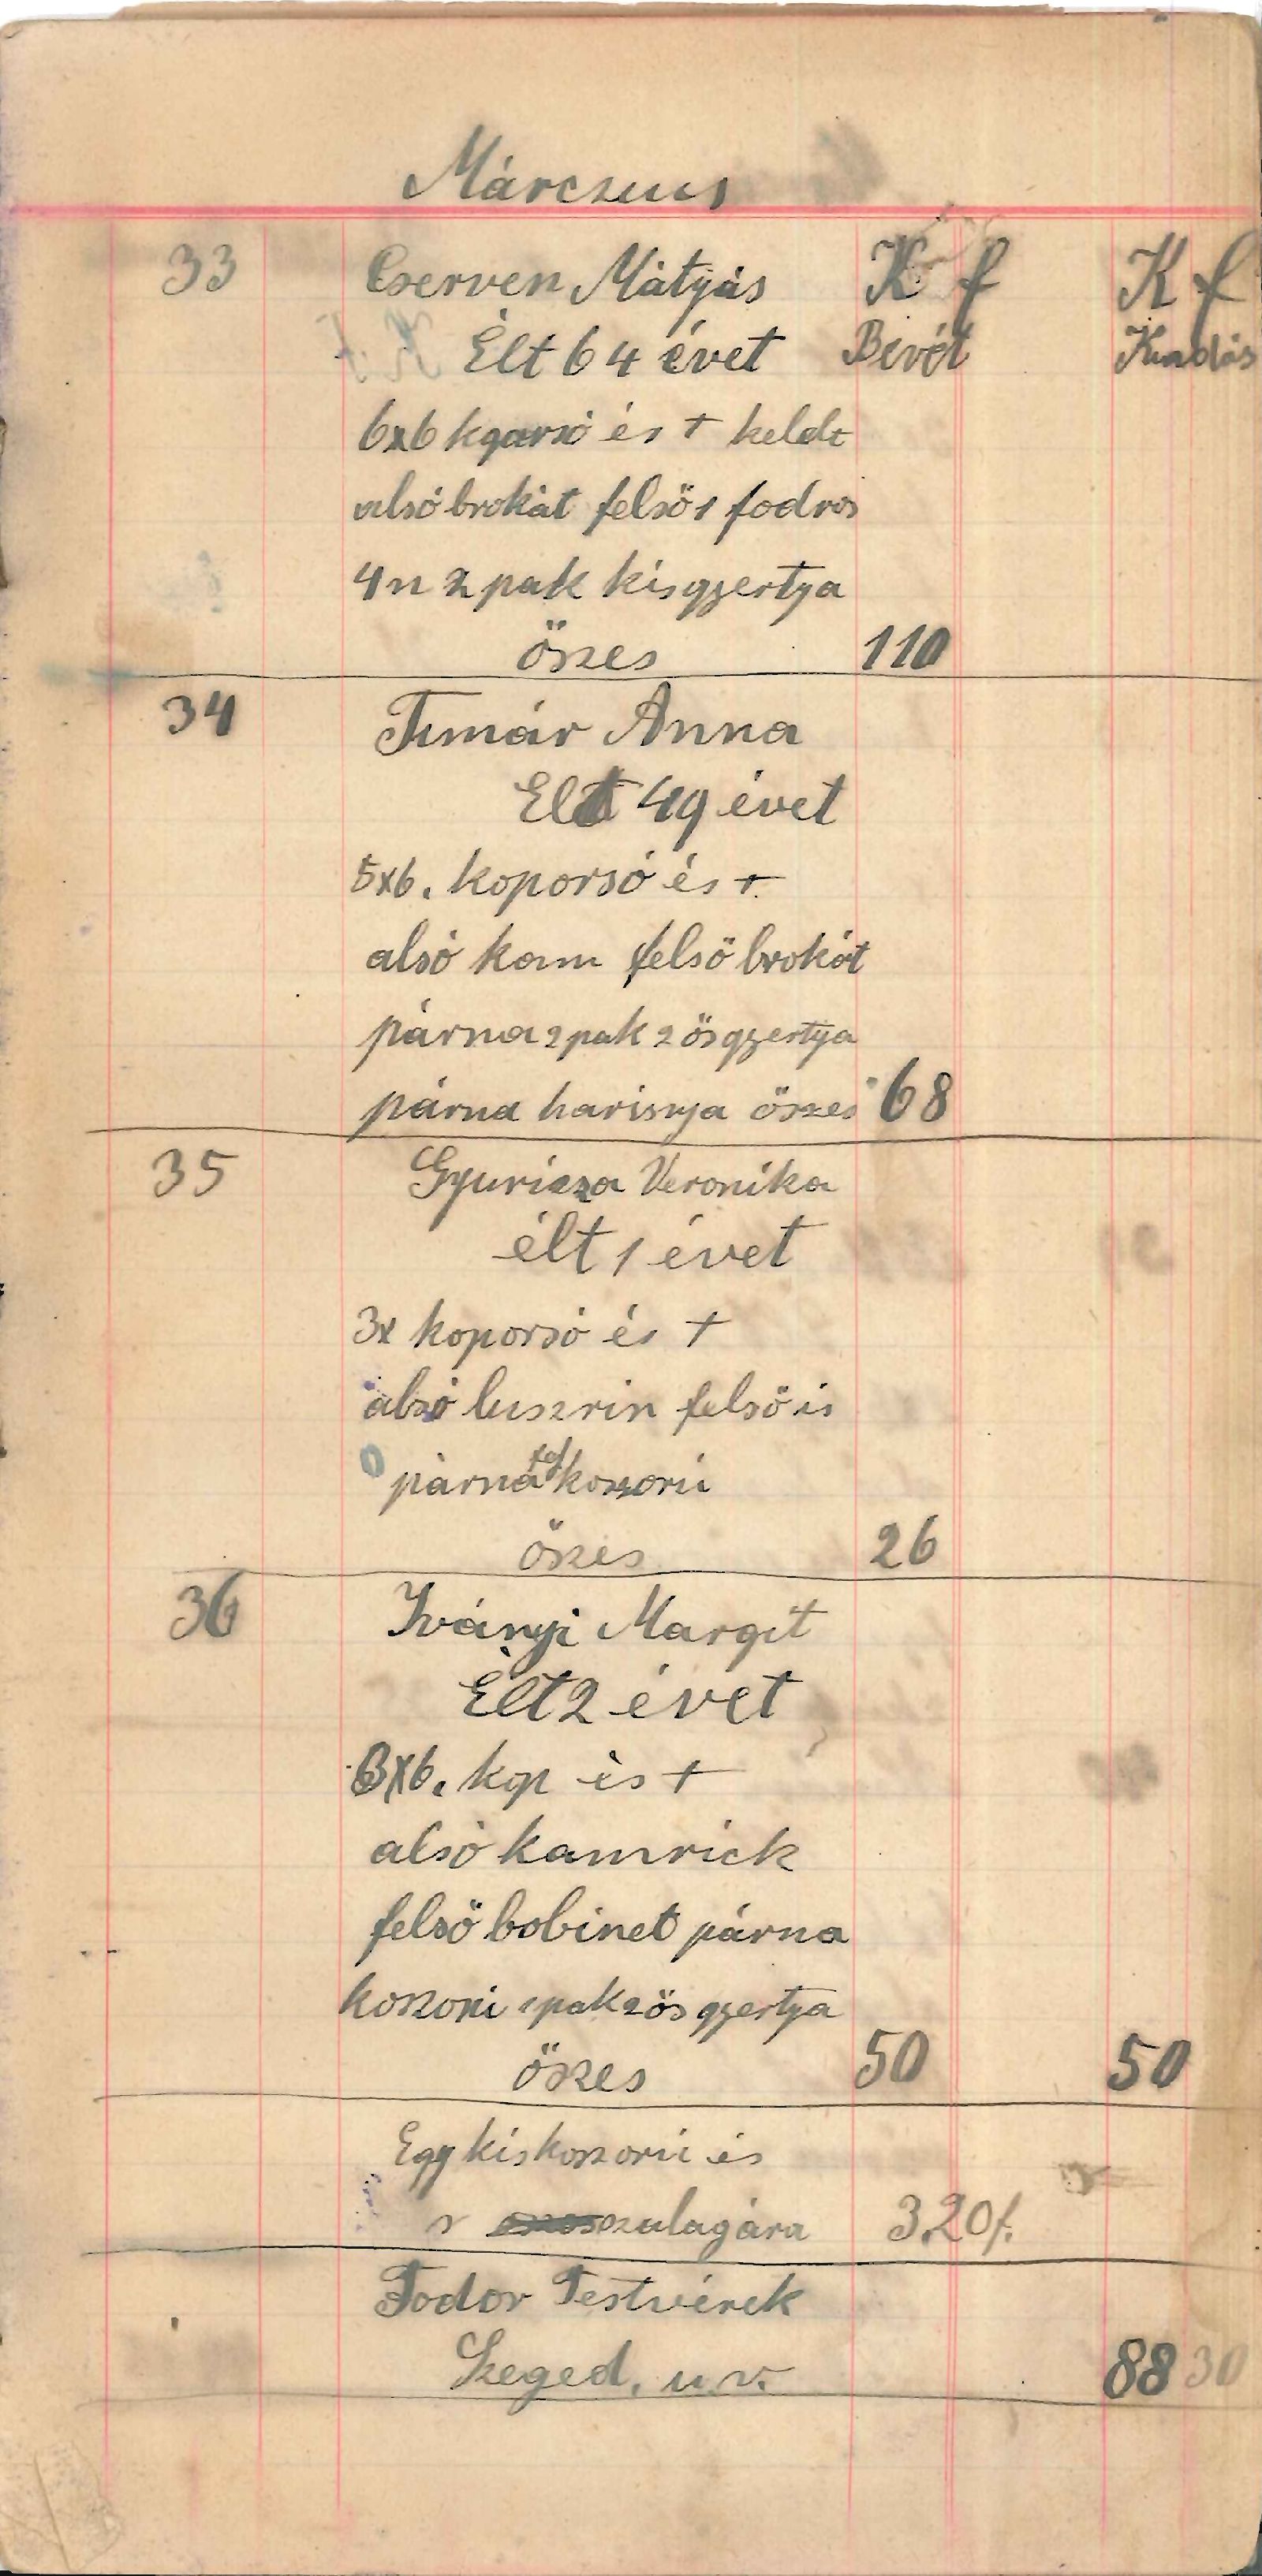 Márczius
33 Cserven Mátyás K f K f
Élt 64 évet Bevét Kiadás
6x6 kgarsó és + keldt
alsó brokát felső 1 fodros
4n 2 pak kisgyertya
öszes 110
34 Timár Anna
Elt 49 évet
5x6. koporsó és +
alsó kam felső brokát
párna 2 pak 2 ös gyertya
párna harisnya öszes 68
35 Gyuricza Veronika
élt 1 évet
3x koporsó és +
alsó luszrin felső is
párna fej koszorú
öszes 26
36 Iványi Margit
Élt 2 évet
3x6. kop és +
alsó kamrick
felső bobinet párna
koszorú 1 pak 2 ös gyertya
öszes 50 50
Egy kis koszorú és
szalagára 3.20f.
Fodor Testvérek
Szeged, u.v. 88 30